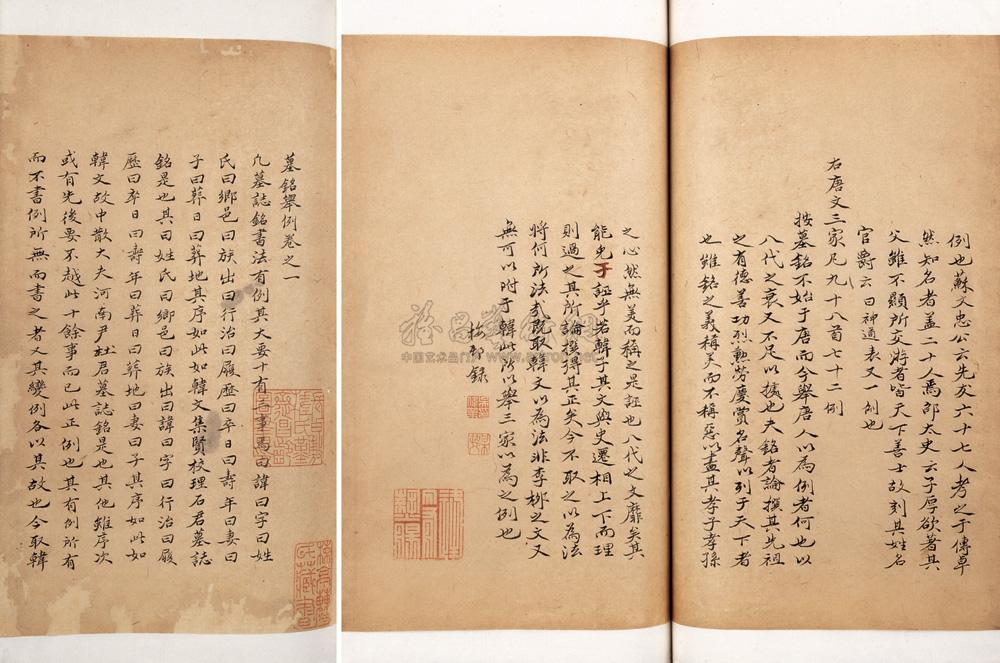 墓銘舉例卷之一
凡墓誌銘書法有例其大要十有三事焉曰諱曰字曰姓
氏曰鄉邑曰族出曰行治曰履歷曰卒日曰壽年曰妻曰
子曰葬日曰葬地其序如此如韓文集賢校理石君墓誌
銘是也其曰姓氏曰鄉邑曰族出曰諱曰字曰行治曰履
歷曰卒日曰壽年曰葬日曰葬地曰妻曰子其序如此如
韓文故中散大夫河南尹杜君墓誌銘是也其他雖序次
或有先後要不越此十餘事而已此正例也其有例所有
而不書例所無而書之者又其變例各以其故也今取韓
例也蘇文忠公云先友六十七人考之于傳卓
然知名者蓋二十人焉邵太史云子厚欲著其
父雖不顯所交游者皆天下善士故刻其姓名
官爵云曰神道表又一例也
右唐文三家凡九十八首七十二例
按墓銘不始于唐而今舉唐人以為例者何也以
八代之衰又不足以據也夫銘者論撰其先祖
之有德善功烈勲勞慶賞名聲以列于天下者
也雖銘之義稱美而不稱惡以盡其孝子孝孫
之心然無美而稱之是誣也八代之文靡矣其
能免于誣乎若韓子其文與史遷相上下而理
則過之其所論撰得其正矣今不取之以為法
將何所法哉既取韓文以為法非李柳之文又
無可以附于韓此所以舉三家以為之例也
錄